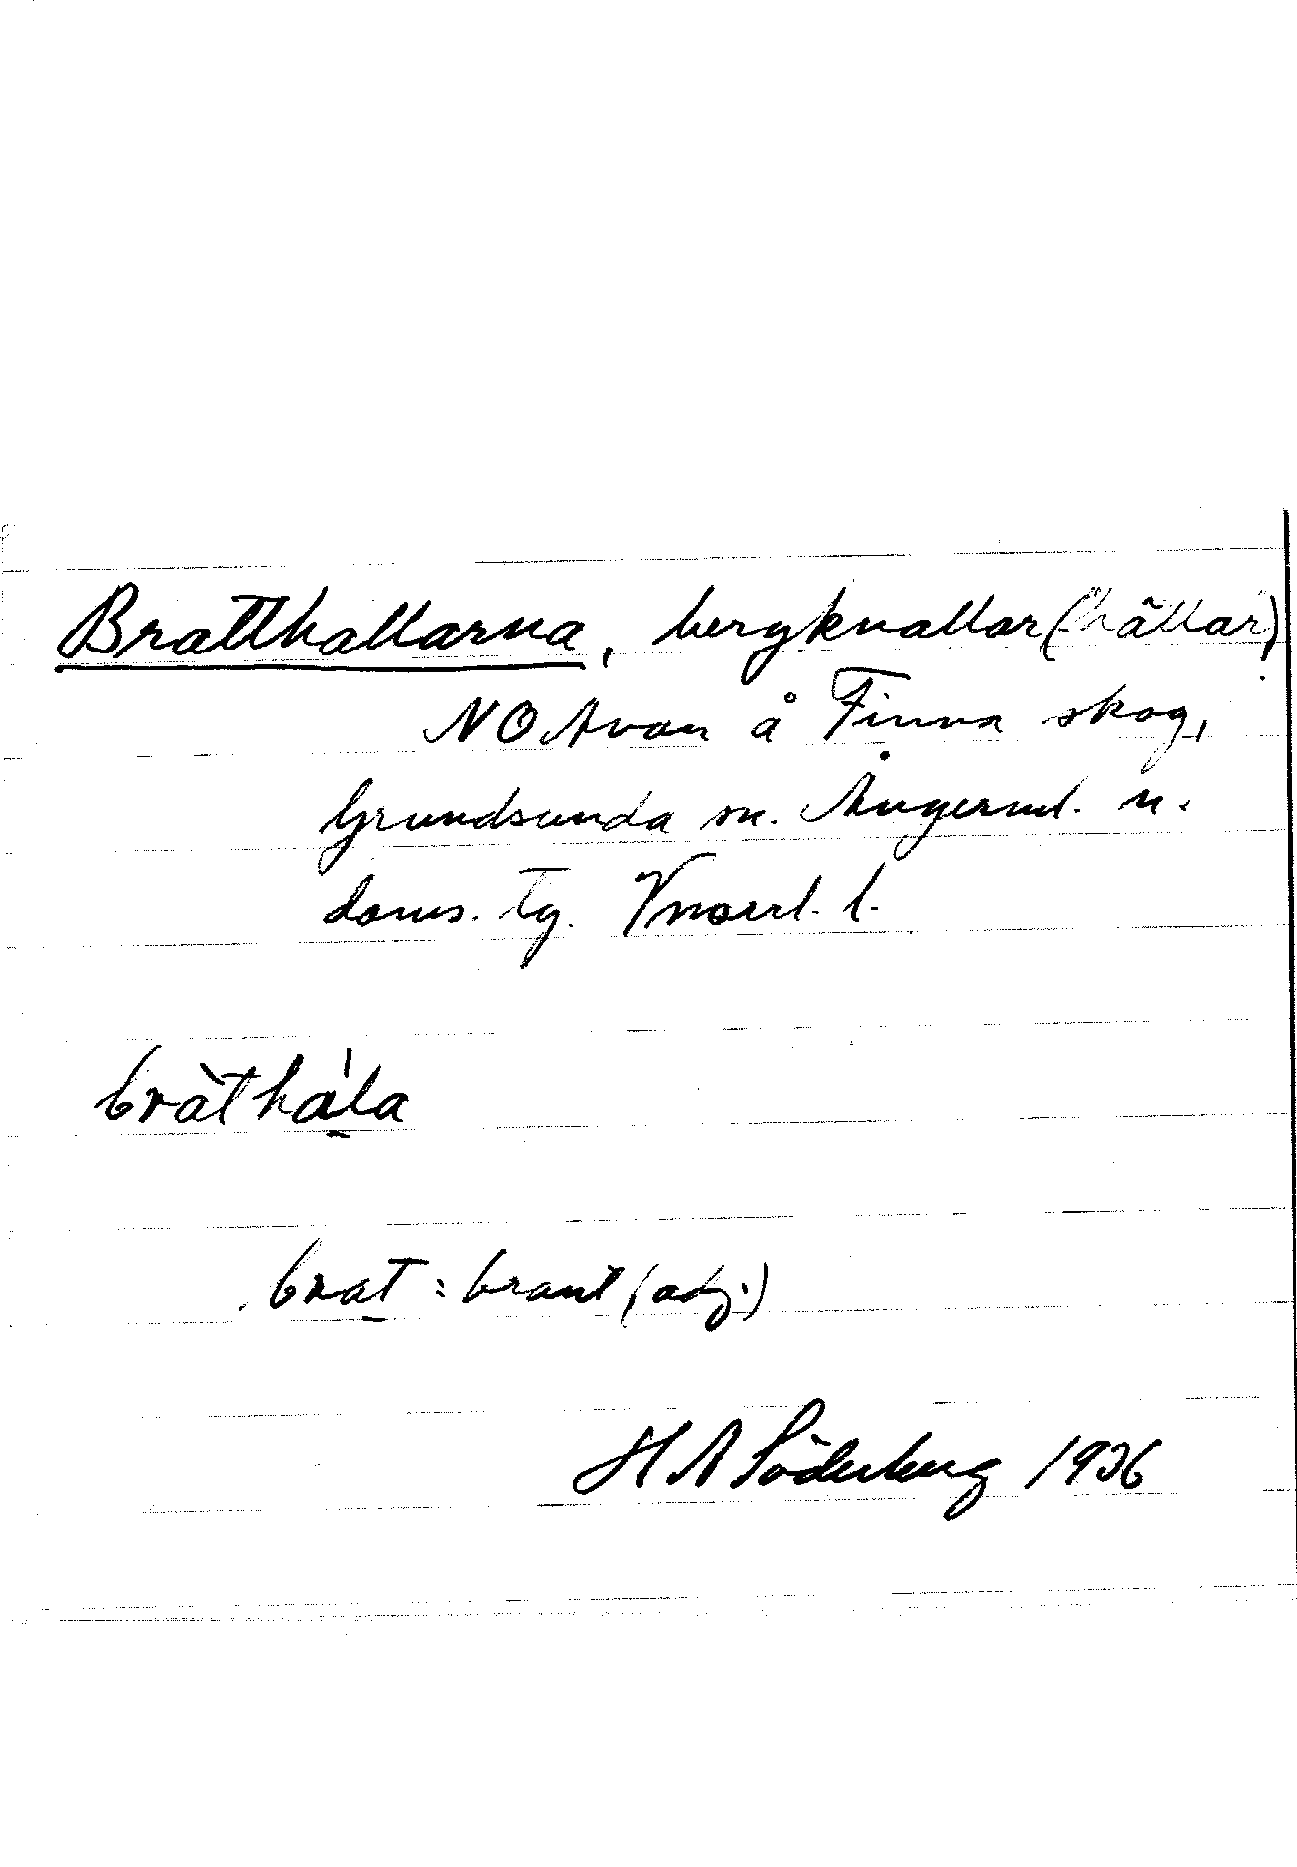 Bratthallarna, bergknallar (hällar)
NO Avan å Finna skog,
Grundsunda sn. Ångerml. n.
doms. tg. Vnorrl. l.
bràthála
brat = brant (adj.)
H A Söderberg 1936